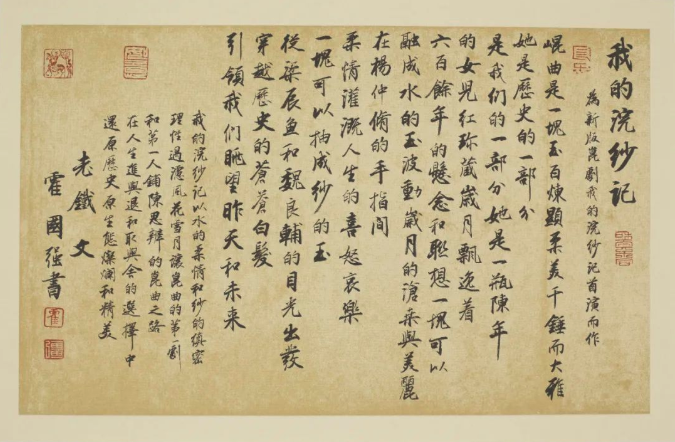 我的浣纱记
为新版崑剧我的浣纱记首演而作
崐曲是一塊玉百煉顯柔美千錘而大雅
她是歷史的一部分
是我们的一部分她是一瓶陳年
的女兒红珎藏歲月飄逸着
六百餘年的懸念和聯想一塊可以
融成水的玉波動歲月的滄桑與美麗
在楊仲脩的手指间
柔情灌溉人生的喜怒哀樂
一塊可以抽成纱的玉
從梁辰鱼和魏良輔的目光出發
穿越歷史的蒼蒼白髮
引領我们眺望昨天和未来
我的浣紗记以水的柔情和纱的缜密
理性過濾風花雪月讓崑曲的第一劇
和第一人鋪陳思辯的崑曲之路
在人生進與退和取與舍的選擇中
還原歷史原生態燦爛和精美
老鐵文
霍國强書